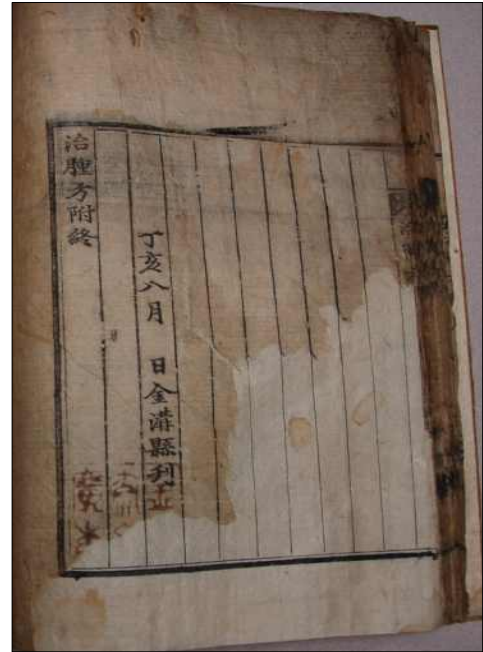 丁亥八月 日金溝縣刊
治腫方附終